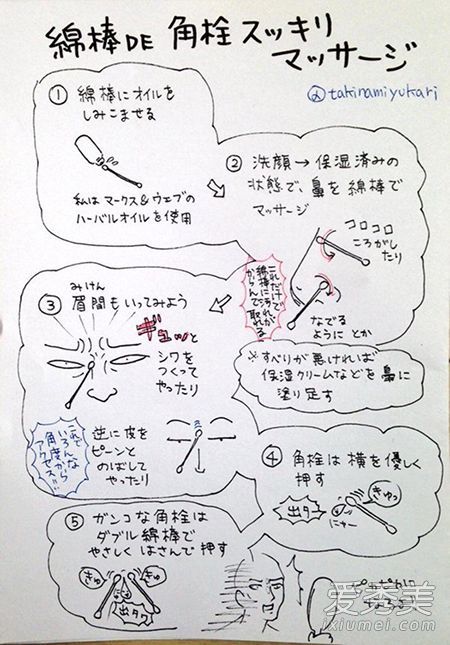 綿棒DE 角栓スッキリ
マッサージ
@takinamiyukari
① 綿棒にオイルを
しみこませる
私はマークス&ウェブの
ハーバルオイルを使用
② 洗顔→保湿済みの
状態で、鼻を綿棒で
マッサージ
コロコロ
ころがし
たり
なでる
ように とか
これだけで
綿棒に汚れが
からんで取れる
※すべりが悪ければ
保湿クリームなどを鼻に
塗り足す
③ 眉間もいってみよう
みけん
ギュッと
シワを
つくって
やったり
逆に皮を
ピーンと
のばして
やったり
これで
いろんな
角度から
アクセス!!
④ 角栓は横を優しく
押す
きゅっ
出タワ
ニャー
⑤ ガンコな角栓は
ダブル綿棒で
やさしくはさんで押す
きゅ
きゅ
出タワ
愛秀美
ixiumei.com